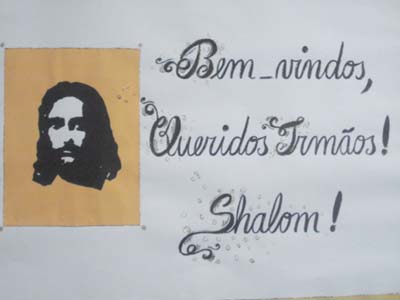 Bem-vindos,
Queridos Irmãos!
Shalom!